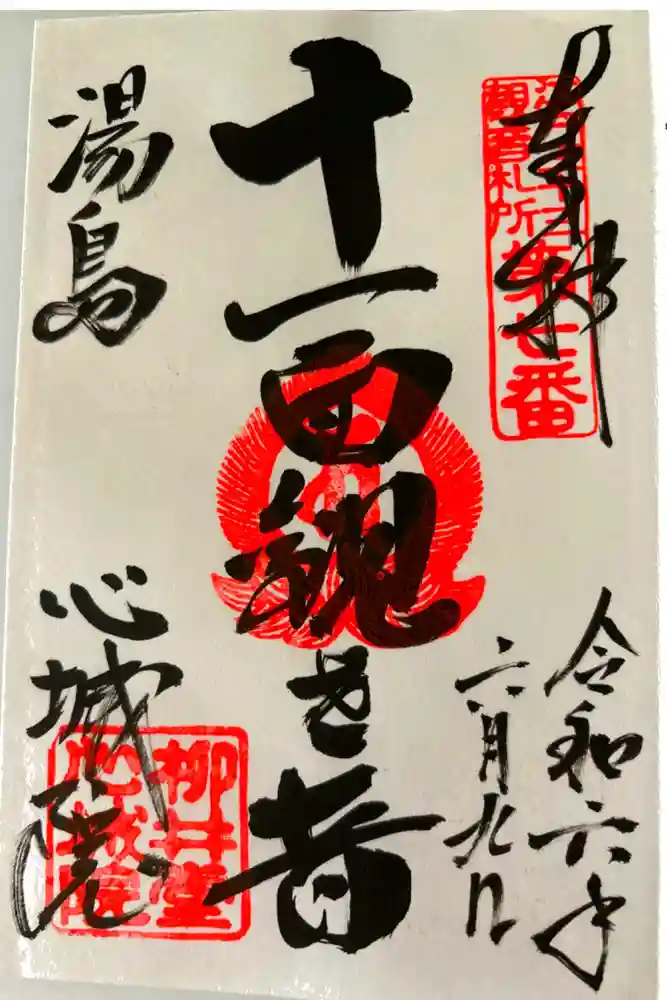 奉拝
江戸三十三
観音札所
第七番
令和六年
六月九日
十一面観世音
湯島
心城院
柳井堂
心城院